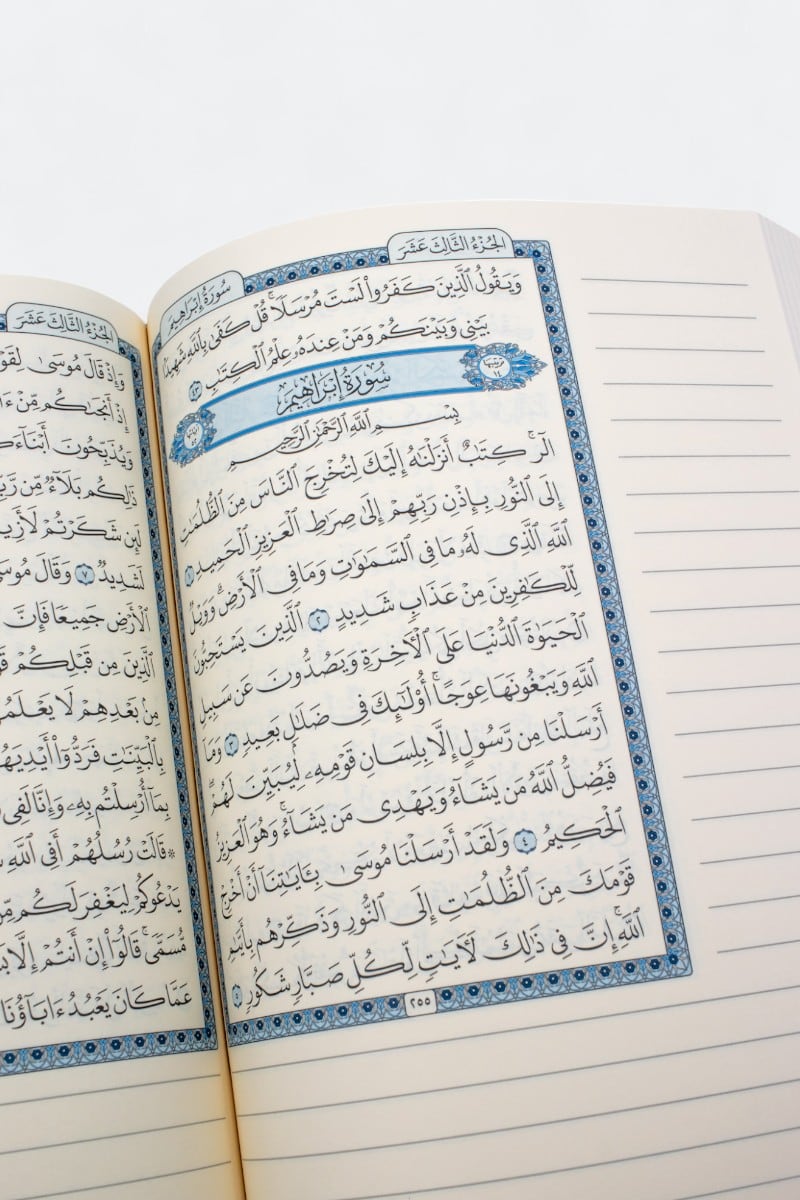 سُورَةُ إِبْرَاهِيمَ
الجُزْءُ الثَّالِثَ عَشَرَ
وَيَقُولُ ٱلَّذِينَ كَفَرُوا۟ لَسْتَ مُرْسَلًا ۚ قُلْ كَفَىٰ بِٱللَّهِ شَهِيدًۢا
بَيْنِى وَبَيْنَكُمْ وَمَنْ عِندَهُۥ عِلْمُ ٱلْكِتَٰبِ ٤٣
ترتيبها ١٤
سُورَةُ إِبْرَاهِيمَ
آياتها ٥٢
بِسْمِ ٱللَّهِ ٱلرَّحْمَٰنِ ٱلرَّحِيمِ
الٓر ۚ كِتَٰبٌ أَنزَلْنَٰهُ إِلَيْكَ لِتُخْرِجَ ٱلنَّاسَ مِنَ ٱلظُّلُمَٰتِ
إِلَى ٱلنُّورِ بِإِذْنِ رَبِّهِمْ إِلَىٰ صِرَٰطِ ٱلْعَزِيزِ ٱلْحَمِيدِ ١
ٱللَّهِ ٱلَّذِى لَهُۥ مَا فِى ٱلسَّمَٰوَٰتِ وَمَا فِى ٱلْأَرْضِ ۗ وَوَيْلٌ
لِّلْكَٰفِرِينَ مِنْ عَذَابٍ شَدِيدٍ ٢ ٱلَّذِينَ يَسْتَحِبُّونَ
ٱلْحَيَوٰةَ ٱلدُّنْيَا عَلَى ٱلْءَاخِرَةِ وَيَصُدُّونَ عَن سَبِيلِ
ٱللَّهِ وَيَبْغُونَهَا عِوَجًا ۚ أُو۟لَٰٓئِكَ فِى ضَلَٰلٍۭ بَعِيدٍ ٣ وَمَآ
أَرْسَلْنَا مِن رَّسُولٍ إِلَّا بِلِسَانِ قَوْمِهِۦ لِيُبَيِّنَ لَهُمْ ۖ
فَيُضِلُّ ٱللَّهُ مَن يَشَآءُ وَيَهْدِى مَن يَشَآءُ ۚ وَهُوَ ٱلْعَزِيزُ
ٱلْحَكِيمُ ٤ وَلَقَدْ أَرْسَلْنَا مُوسَىٰ بِـَٔايَٰتِنَآ أَنْ أَخْرِجْ
قَوْمَكَ مِنَ ٱلظُّلُمَٰتِ إِلَى ٱلنُّورِ وَذَكِّرْهُم بِأَيَّىٰمِ
ٱللَّهِ ۚ إِنَّ فِى ذَٰلِكَ لَءَايَٰتٍ لِّكُلِّ صَبَّارٍ شَكُورٍ ٥
٢٥٥
الجُزْءُ الثَّالِثَ عَشَرَ
وَإِذْ قَالَ مُوسَىٰ لِقَوْ
إِذْ أَنجَىٰكُم مِّنْ ءَا
وَيُذَبِّحُونَ أَبْنَآءَكُ
ذَٰلِكُم بَلَآءٌ مِّن رَّبِّ
لَئِن شَكَرْتُمْ لَأَزِيد
لَشَدِيدٌ ٧ وَقَالَ مُوسَ
ٱلْأَرْضِ جَمِيعًا فَإِنَّ
ٱلَّذِينَ مِن قَبْلِكُمْ قَوْ
مِنۢ بَعْدِهِمْ لَا يَعْلَمُ
بِٱلْبَيِّنَٰتِ فَرَدُّوٓا۟ أَيْدِيَهُ
بِمَآ أُرْسِلْتُم بِهِۦ وَإِنَّا لَفِى
۞ قَالَتْ رُسُلُهُمْ أَفِى ٱللَّهِ
يَدْعُوكُمْ لِيَغْفِرَ لَكُم مِّن
مُّسَمًّى ۚ قَالُوٓا۟ إِنْ أَنتُمْ إِلَّا بَ
عَمَّا كَانَ يَعْبُدُ ءَابَآؤُنَا